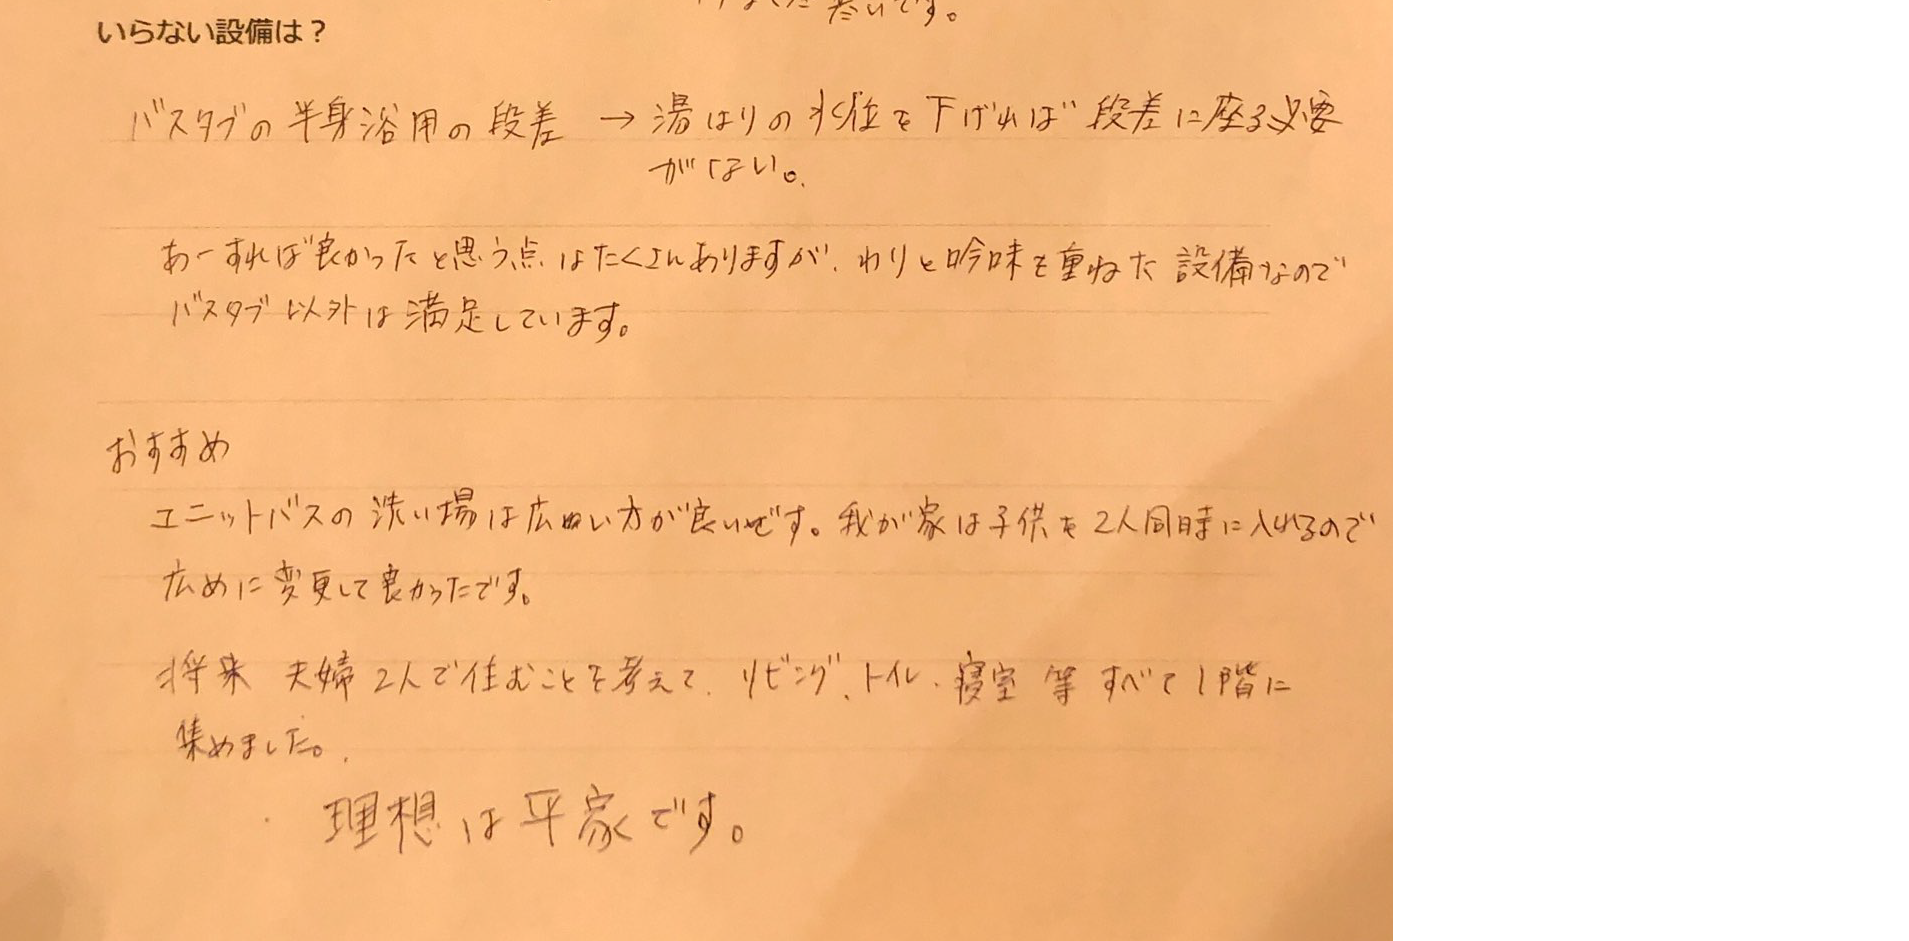 いらない設備は？
バスタブの半身浴用の段差 → 湯はりの水位を下げれば段差に座る必要
がない。
あーすれば良かったと思う点はたくさんありますが、わりと吟味を重ねた設備なので
バスタブ以外は満足しています。
おすすめ
ユニットバスの洗い場は広めい方が良いです。我が家は子供を2人同時に入れるので
広めに変更して良かったです。
将来 夫婦2人で住むことを考えて、リビング、トイレ、寝室 等 すべて1階に
集めました。
理想は平家です。